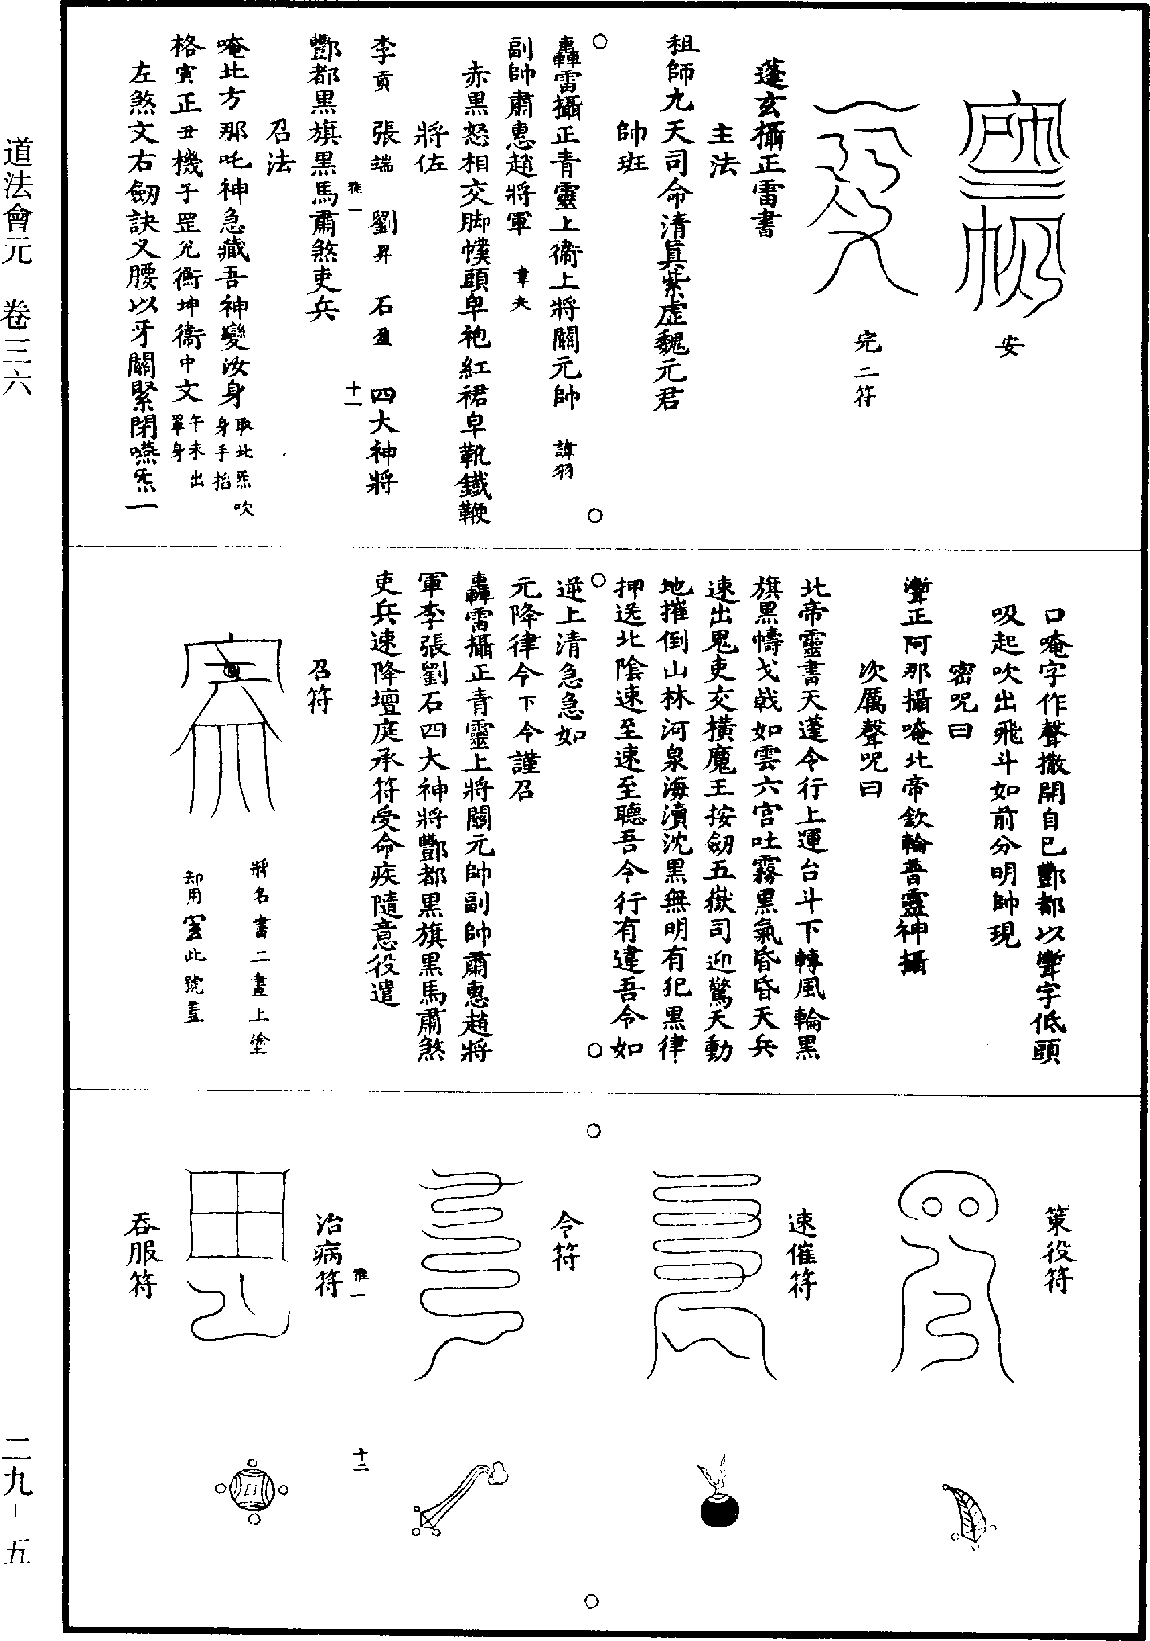 道法會元　卷三六
安
完二符
蓬玄攝正雷書
主法
祖師九天司命清眞紫虛魏元君
帥班
轟雷攝正青靈上衞上將關元帥　諱羽
副帥肅惠趙將軍　韋夫
赤黑怒相交脚幞頭皁袍紅裙皁靴鐵鞭
將佐
李貢　張端　劉昇　石盈　四大神將
雅一　十一
酆都黑旗黑馬肅煞吏兵
召法
唵北方那吒神急藏吾神變汝身取北炁吹身手掐
格寅正丑機子罡兊衝坤衞中文午未出單身
左煞文右劒訣叉腰以牙關緊閉嚥炁一
口唵字作聲撒開自巳酆都以字低頭
吸起吹出飛斗如前分明帥現
密咒曰
正阿那攝唵北帝欽輪普靈神攝
次厲聲咒曰
北帝靈書天蓬令行上運台斗下轉風輪黑
旗黑幬戈戟如雲六宮吐霧黑氣昏昏天兵
速出鬼吏交橫魔王按劒五嶽司迎驚天動
地摧倒山林河泉海瀆沈黑無明有犯黑律
押送北陰速至速至聽吾令行有違吾令如
逆上清急急如
元降律令下令謹召
轟雷攝正青靈上將關元帥副帥肅惠趙將
軍李張劉石四大神將酆都黑旗黑馬肅煞
吏兵速降壇庭承符受命疾隨意役遣
召符
將名書二畫上塗
却用此號蓋
策役符
速催符
令符
治病符
雅一　十二
吞服符
二九－五